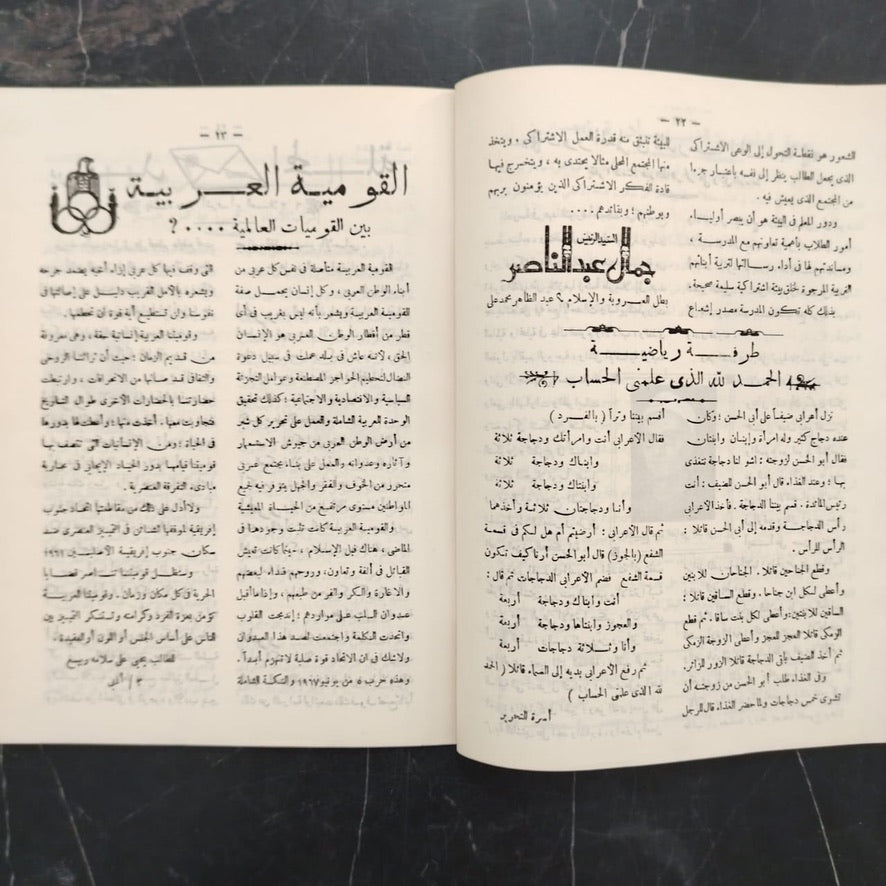 — ٢٢ —
الشعور هو نقطة التحول إلى الوعى الاشتراكى
الذى يجعل الطالب ينظر إلى نفسه باعتبار جزءا
من المجتمع الذى يعيش فيه .
ودور المعلم فى البيئة هو أن يبصر أولياء
أمور الطلاب بأهمية تعاونهم مع المدرسة ،
ومساندتهم لها فى أداء رسالتها لتربية أبنائهم
التربية المرجوة لخلق بيئة اشتراكية سليمة صحيحة ،
بذلك كله تكون المدرسة مصدر إشعاع
للبيئة تنبثق منه قدرة العمل الاشتراكى ، ويتخذ
منها المجتمع المحلى مثالا يحتذى به ، ويتخرج فيها
قادة الفكر الاشتراكى الذين يؤمنون بربهم
وبوطنهم ؛ وبقائدهم ....
السيد الرئيس
جمال عبد الناصر
بطل العروبة والإسلام ؟ عبد الظاهر محمد على
طرفة رياضية
الحمد لله الذى علمنى الحساب
نزل أعرابى ضيفاً على أبى الحسن ؛ وكان
عنده دجاج كثير وله امرأة وإبنان وابنتان
فقال أبو الحسن لزوجته : اشو لنا دجاجة نتغذى
بها ؛ وعند الغذاء قال أبو الحسن للضيف : أنت
رئيس المائدة . قسم بيننا الدجاجة . فأخذ الأعرابى
رأس الدجاجة وقدمه إلى أبى الحسن قائلا :
الرأس للرأس .
وقطع الجناحين قائلا . الجناحان للابنين
وأعطى لكل ابن جناحا . وقطع الساقين قائلا :
الساقين للابنتين ، وأعطى لكل بنت ساقا . ثم قطع
الزمكى قائلا العجز للعجز وأعطى الزوجة الزمكى
ثم أخذ الضيف بأقى الدجاجة قائلا الزور للزائر .
وفى الغداء طلب أبو الحسن من زوجته أن
تشوى خمس دجاجات ولما حضر الغذاء قال للرجل
أقسم بيننا وتراً ( بالفرد )
فقال الأعرابى : أنت وامرأتك ودجاجة ثلاثة
وابناك ودجاجة ثلاثة
وابنتاك ودجاجة ثلاثة
وأنا ودجاجتان ثلاثة وأخذهما
ثم قال الأعرابى : أرضيتم أم هل لكم فى قسمة
الشفع ( بالجوز ) قال أبو الحسن أرنا كيف تكون
قسمة الشفع فضم الأعرابى الدجاجات ثم قال :
أنت وابناك ودجاجة أربعة
والعجوز وابنتاها ودجاجة أربعة
وأنا وثلاثة دجاجات أربعة
ثم رفع الأعرابى يديه إلى السماء قائلا ( الحمد
لله الذى علمنى الحساب )
أسرة التحرير
— ٢٣ —
القومية العربية
بين القوميات العالمية .... ؟
القومية العربية متأصلة فى نفس كل عربى من
أبناء الوطن العربى ، وكل إنسان يحمل صفة
القومية العربية ويشعر بأنه ليس بغريب فى أى
قطر من أقطار الوطن العربى هو الإنسان
الحق ، لأنه عاش فى بلد عملت فى سبيل دعوة
النضال لتحطيم الحواجز المصطنعة وعوامل التجزئة
السياسية والاقتصادية والاجتماعية ؛ كذلك تحقيق
الوحدة العربية الشاملة والعمل على تحرير كل شبر
من أرض الوطن العربى من جيوش الاستعمار
وآثاره وعدوانه والعمل على بناء مجتمع عربى
متحرر من الخوف والفقر والجهل يتوفر فيه لجميع
المواطنين مستوى مرتفع من الحياة المعيشية
والقومية العربية كانت ثابت وجودها فى
الماضى ، هناك قبل الإسلام ، حينما كانت تعيش
القبائل فى ألفة وتعاون ، وروحهم فداء لبعضهم
والاغارة والكر والفر من طبعهم ، وإذا ما أقبل
عدوان السلب على مواردهم ؛ إندمجت القلوب
واتحدت الكلمة واجتمعت لصد هذا العدوان
ولاشك فى ان الاتحاد قوة صلبة لا تنهزم أبداً .
وهذه حرب ٥ من يونيو ١٩٦٧ والنكسة الشاملة
التى وقف فيها كل عربى إزاء أخيه يضمد جرحه
ويشعره بالأمل القريب دليل على إصالتها فى
نفوسنا ولن تستطيع أية قوة أن تحطمها .
وقوميتنا العربية إنسانية حقة ، وهى معروفة
من قديم الزمان ؛ حيث أن تراثنا الروحى
والثقافى قد صانها من الانحرافات ، وارتبطت
حضارتنا بالحضارات الأخرى طوال التاريخ
فتجاوبت معها . أخذت منها ؛ وأعطتها بدورها
فى الحياة ؛ ومن الإنسانيات التى تتصف بها
قوميتنا قيامها بدور الحياد الإيجابى فى محاربة
مبادىء التفرقة العنصرية .
ولا أدل على ذلك من مقاطعتها اتحاد جنوب
إفريقية لموقفها الشائن فى التمييز العنصرى ضد
سكان جنوب إفريقية الأصليين ١٩٦١
وستظل قوميتنا تناصر قضايا
الحرية فى كل مكان وزمان . وقوميتنا العربية
تؤمن بعزة الفرد وكرامته وتستنكر التمييز بين
الناس على أساس الجنس أو اللون أو العقيدة .
الطالب يحيى على سلامه ربيع